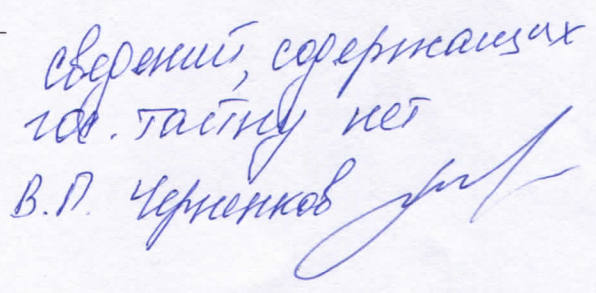 сведений, содержащих
гос. тайну нет
В.П. Черненков